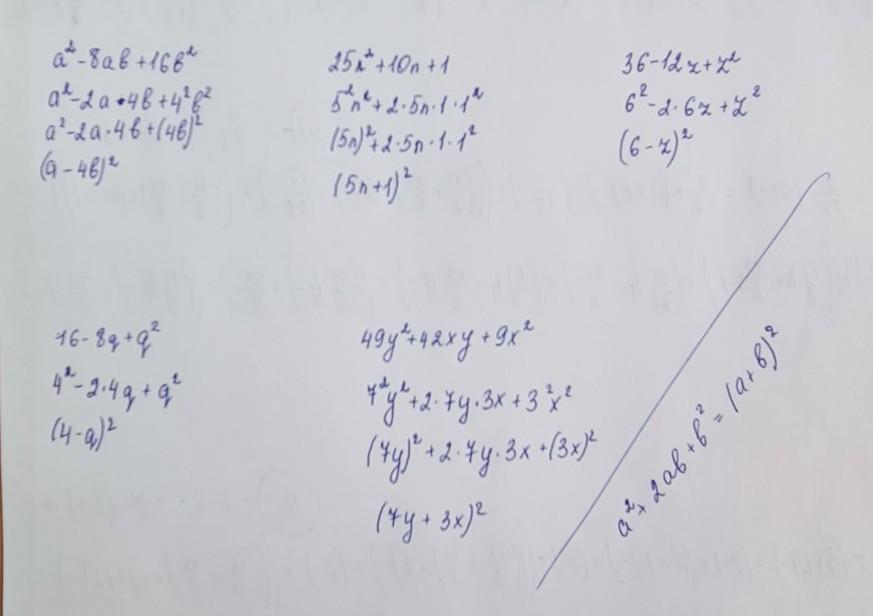 a² - 8ab + 16b²
a² - 2a • 4b + 4²b²
a² - 2a · 4b + (4b)²
(a - 4b)²
25n² + 10n + 1
5²n² + 2 · 5n · 1 · 1²
(5n)² + 2 · 5n · 1 · 1²
(5n + 1)²
36 - 12z + z²
6² - 2 · 6z + z²
(6 - z)²
16 - 8q + q²
4² - 2 · 4q + q²
(4 - q)²
49y² + 42xy + 9x²
7²y² + 2 · 7y · 3x + 3²x²
(7y)² + 2 · 7y · 3x + (3x)²
(7y + 3x)²
a² + 2ab + b² = (a + b)²